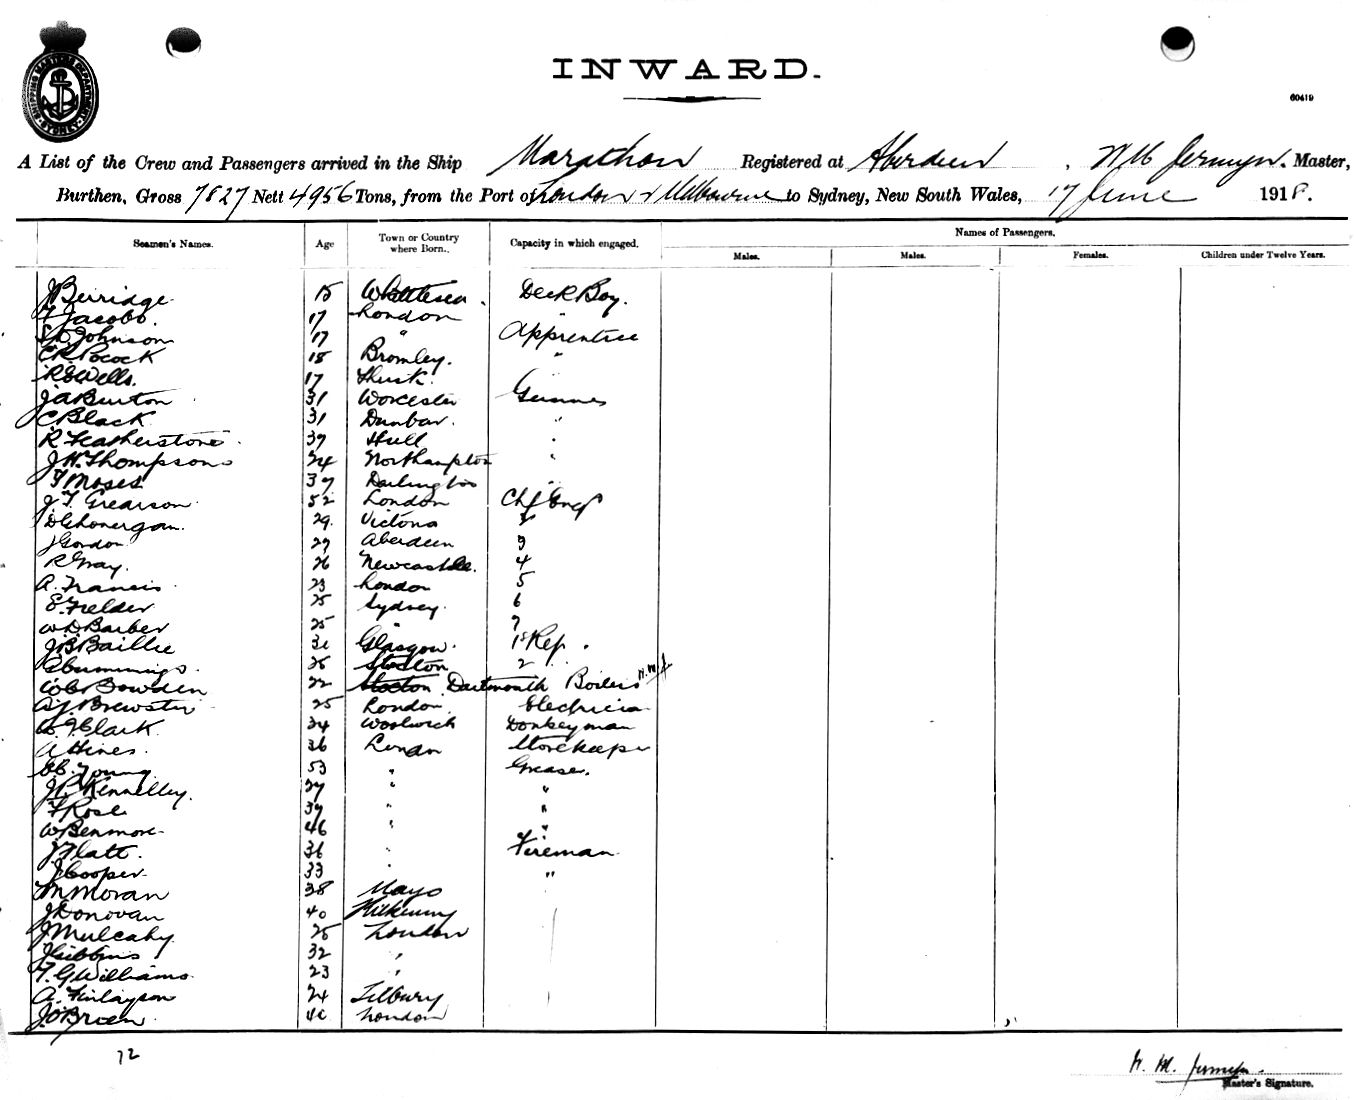 SHIPPING MASTERS DEPARTMENT SYDNEY
INWARD.
60419
A List of the Crew and Passengers arrived in the Ship Marathon Registered at Aberdeen, W M Jermyn. Master,
Burthen, Gross 7827 Nett 4956 Tons, from the Port of London & Melbourne to Sydney, New South Wales, 17 June 1918.
Seamen's Names. Age Town or Country where Born. Capacity in which engaged. Names of Passengers.
Males. Males. Females. Children under Twelve Years.
J Berridge 15 Whittlesea. Deck Boy.
F Jacobs. 17 London "
Johnson 17 " Apprentice
C R Pocock 18 Bromley. "
R S Wells. 17 Thirsk.
J A Burton 31 Worcester Gunner
C Black 31 Dunbar. "
R Featherstone 37 Hull "
J W Thompson 24 Northampton "
F Moses 37 Darlington "
J. T. Grearson 52 London Chf Engr
D Lonergan. 29. Victoria 2
J Gordon 29 Aberdeen 3
R Gray. 26 Newcastle. 4
A. Francis 23 London 5
E. Fielder 25 Sydney. 6
W D Barber 25 " 7
J B Baillie 31 Glasgow. 1st Ref.
Cummings. 26 Stockton 2
W C Bowden 22 Stockton Dartmouth Boilers W.M.J
A J Brewster 25 London Electrician
Clark 34 Woolwich Donkeyman
A Hines. 36 London Storekeeper
Young 53 " Greaser.
J P Kennelley. 27 " "
F Rose 39 " "
W Benmore 46 " "
J Flatt. 36 " Fireman
J Cooper. 33 " "
M Moran 38 Mayo
J Donovan 40 Kilkenny
J Mulcahy 25 London
J Gibbins 32 "
F. G Williams 23 "
A. Finlayson 24 Tilbury
J. O'Brien. London
72
W. M. Jermyn.
Master's Signature.